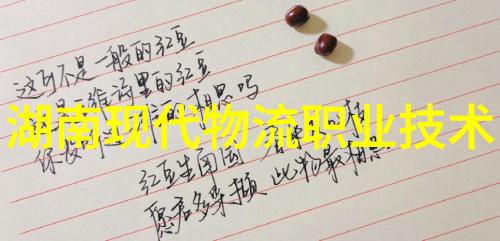 这可不是一般的红豆
是维诗里的红豆
你仅
相思吗
湖南现代物流职业技术
红豆生南国
愿君多采撷 此物最相思